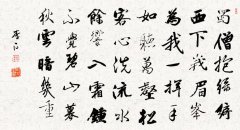 蜀僧抱绿绮
西下峨眉峰
为我一挥手
如听万壑松
客心洗流水
馀响入霜钟
不觉碧山暮
秋云暗几重